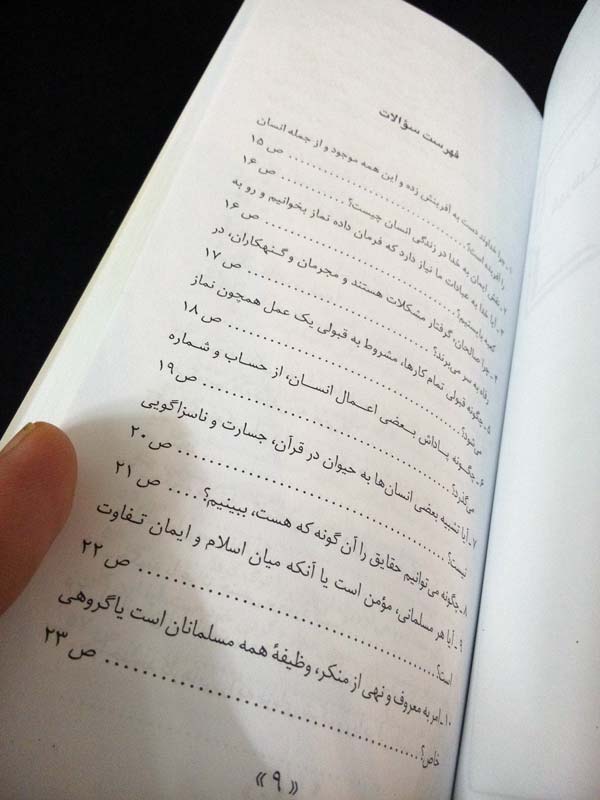 فهرست سؤالات
۱ـ چرا خداوند دست به آفرینش زده و این همه موجود و از جمله انسان
را آفریده است؟ ........ ص ۱۵
۲ـ نقش ایمان به خدا در زندگی انسان چیست؟ ........ ص ۱۶
۳ـ آیا خدا به عبادات ما نیاز دارد که فرمان داده نماز بخوانیم و رو به
کعبه بایستیم؟ ........ ص ۱۶
۴ـ چرا صالحان، گرفتار مشکلات هستند و مجرمان و گنهکاران، در
رفاه به سر می‌برند؟ ........ ص ۱۷
۵ـ چگونه قبولی تمام کارها، مشروط به قبولی یک عمل همچون نماز
می‌شود؟ ........ ص ۱۸
۶ـ چگونه پاداش بعضی اعمال انسان، از حساب و شماره
می‌گذرد؟ ........ ص ۱۹
۷ـ آیا تشبیه بعضی انسان‌ها به حیوان در قرآن، جسارت و ناسزاگویی
نیست؟ ........ ص ۲۰
۸ـ چگونه می‌توانیم حقایق را آن گونه که هست، ببینیم؟ .... ص ۲۱
۹ـ آیا هر مسلمانی، مؤمن است یا آنکه میان اسلام و ایمان تفاوت
است؟ ........ ص ۲۲
۱۰ـ امر به معروف و نهی از منکر، وظیفهٔ همه مسلمانان است یا گروهی
خاص؟ ........ ص ۲۳
« ۹ »